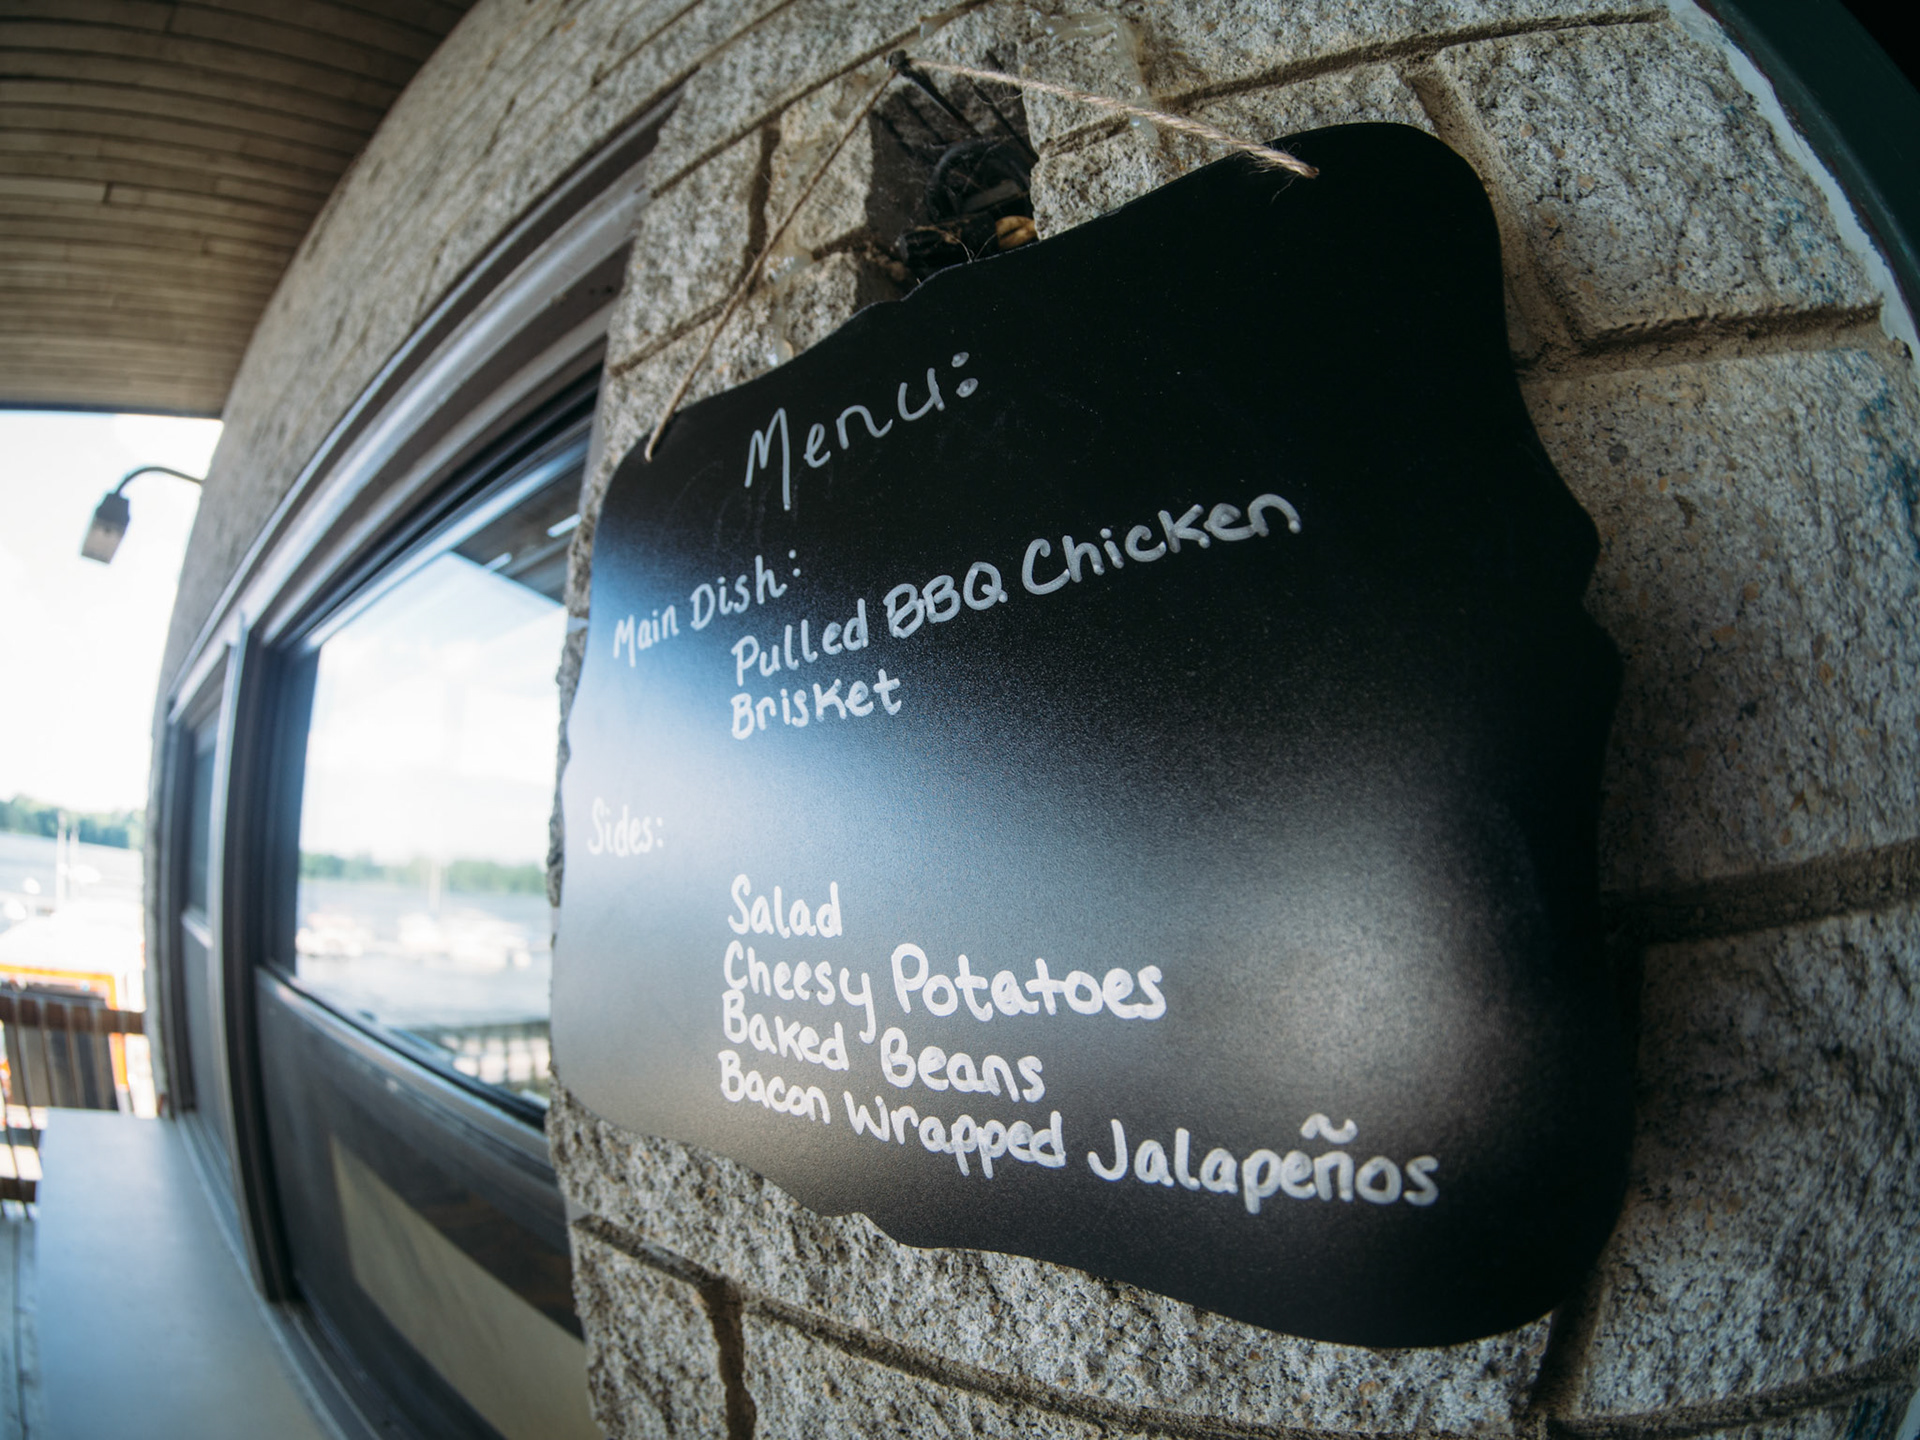 Menu:
Main Dish:
Pulled BBQ Chicken
Brisket
Sides:
Salad
Cheesy Potatoes
Baked Beans
Bacon Wrapped Jalapeños